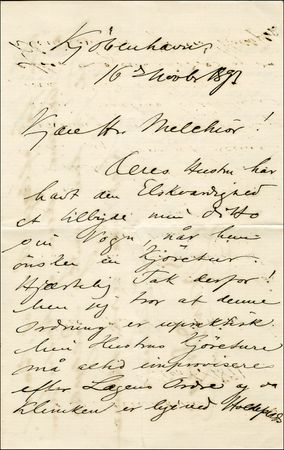 Kjöbenhavn,
16d Novbr 1893
Kjære Hr. Melchior!
Deres Hustru har
havt den Elskværdighed
at tilbyde min ditto
sin Vogn, når hun
önsker en Kjöretur.
Hjærtelig Tak derfor!
Men jeg tror at denne
Ordning er upraktisk.
Min Hustrus Kjöreture
må altid improviseres
efter Lægens Ordre og
Kliniken er ligeved